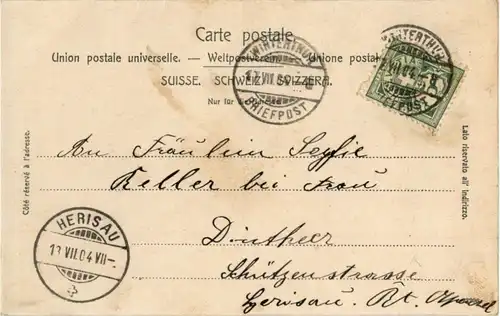 Carte postale.
Union postale universelle. — Weltpostverein. — Unione postale
SUISSE. SCHWEIZ. SVIZZERA.
Nur für die Adresse.
WINTERTHUR
12.VII.04
BRIEFPOST
WINTERTHUR
VII.04
BRIEFPOST
Côté réservé à l'adresse.
Lato riservato all' indirizzo.
An Fräulein Sophie
Keller bei Frau
HERISAU
13.VII.04.VII-
Schützenstrasse
Herisau. Kt. Appenzel